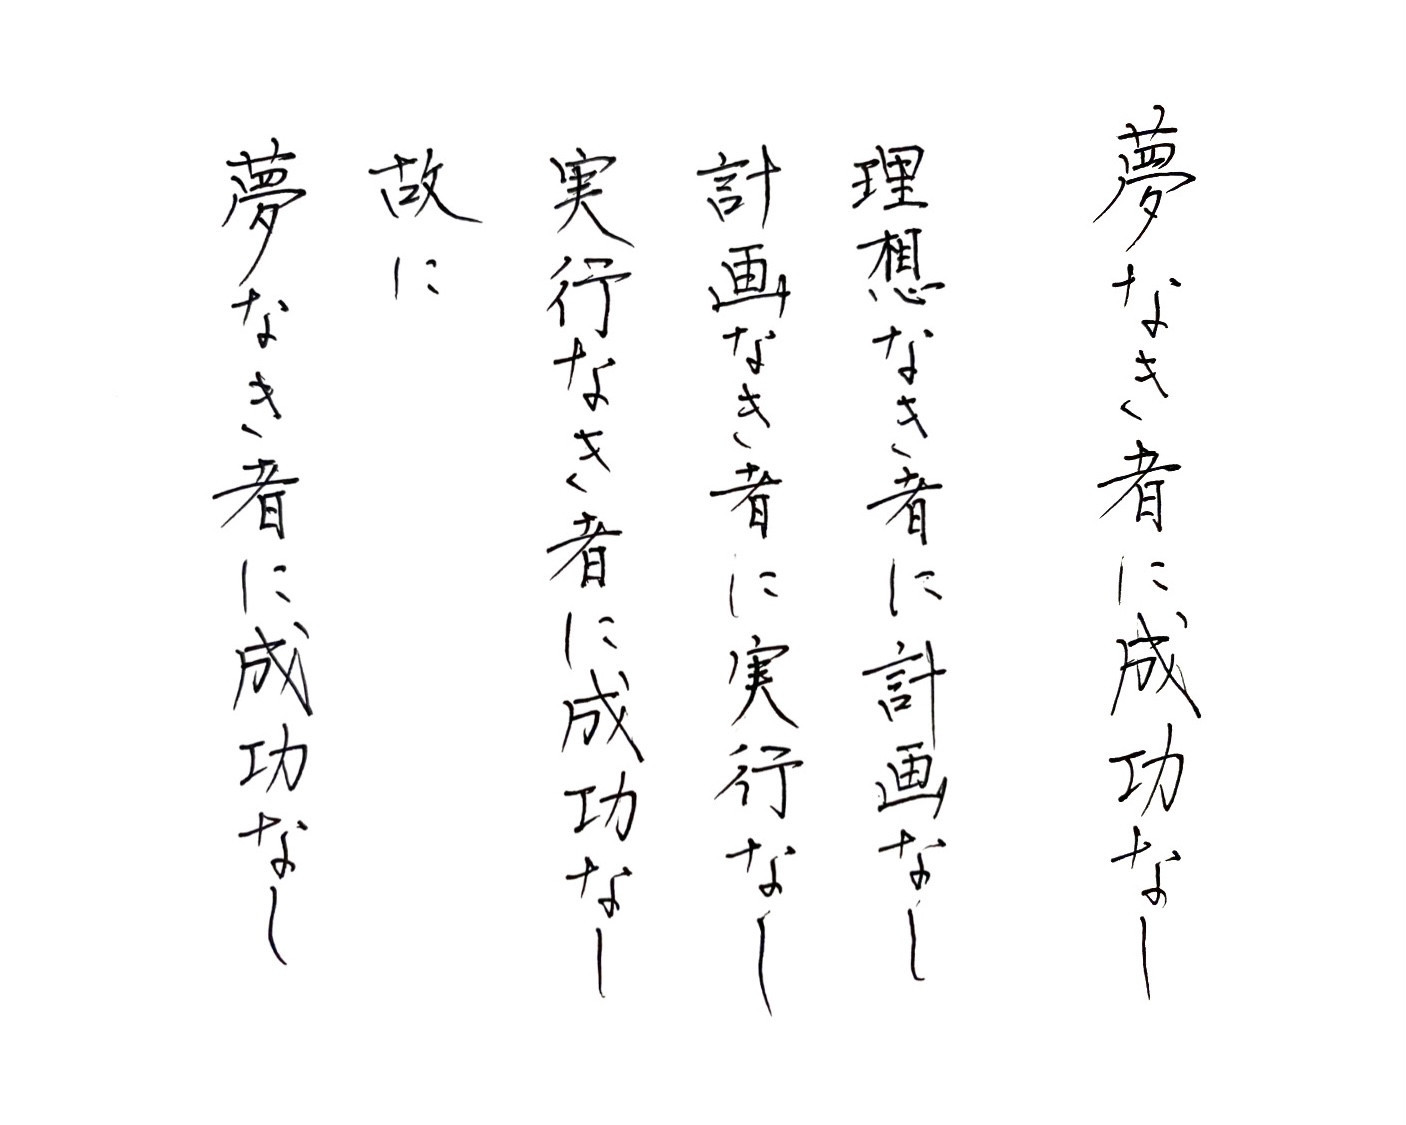 夢なき者に成功なし
理想なき者に計画なし
計画なき者に実行なし
実行なき者に成功なし
故に
夢なき者に成功なし